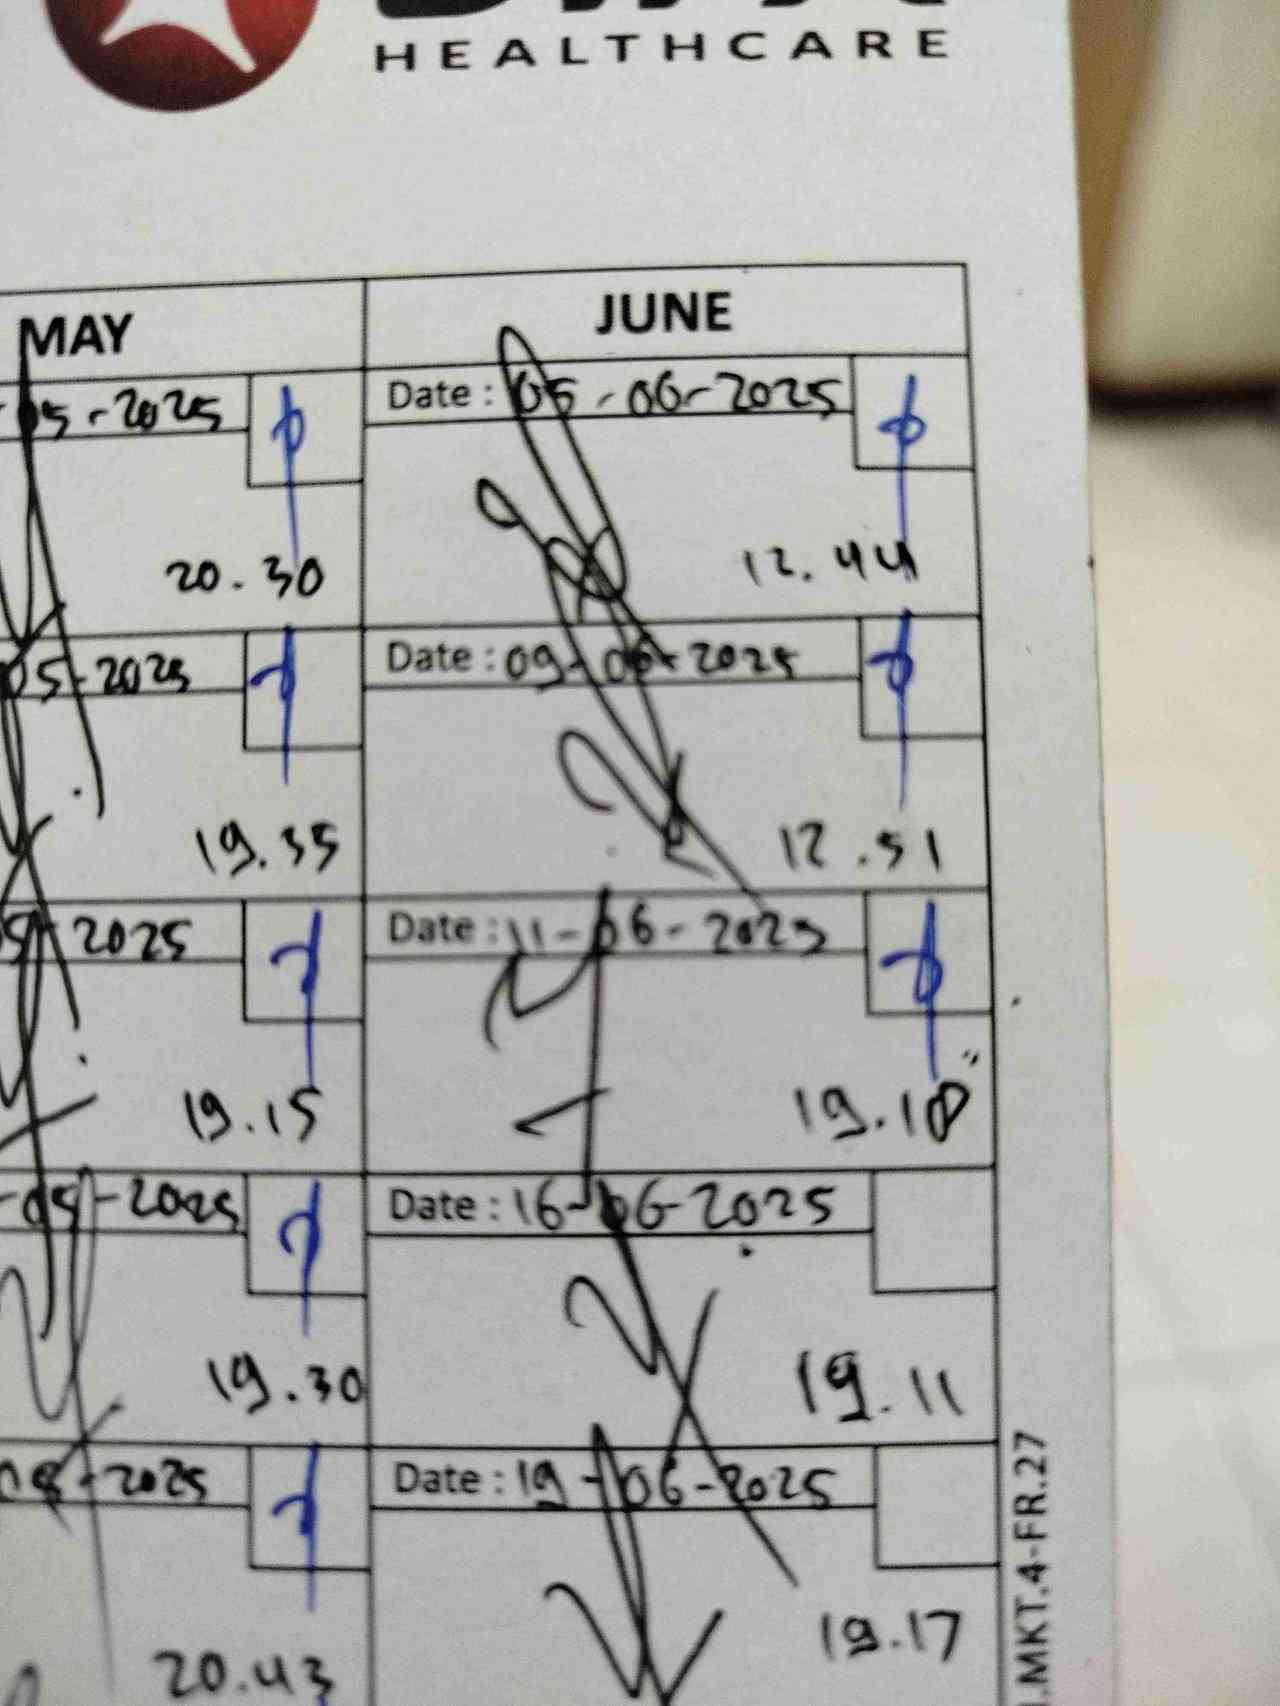 HEALTHCARE
MAY
JUNE
05-2025
Date : 05-06-2025
20.30
12.44
05-2025
Date : 09-06-2025
19.35
12.51
2025
Date : 11-06-2025
19.15
19.18
-05-2025
Date : 16-06-2025
19.30
19.11
-2025
Date : 19-06-2025
20.43
19.17
.MKT.4-FR.27